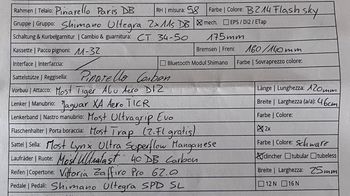 Rahmen | Telaio: Pinarello Paris DB RH | misura: 58 Farbe | Colore: B214 Flash sky
Gruppe | Gruppo: Shimano Ultegra 2x11s DB ☒ mech. ☐ EPS / DI2 / Etap
Schaltung & Kurbelgarnitur | Cambio & guarnitura: CT 34-50 175mm
Kassette | Pacco pignoni: 11-32 Bremsen | Freni: 160/140mm
Interface | Interfaccia: ☐ Bluetooth Modul Shimano Farbe | Sovraprezzo colore:
Sattelstütze | Reggisella: Pinarello Carbon
Vorbau | Attacco: Most Tiger Alu Aero DI2 Länge | Lunghezza: 120mm
Lenker | Manubrio: Jaguar XA Aero TiCR Breite | Larghezza (a/a): 46cm
Lenkerband | Nastro manubrio: Most Ultragrip Evo
Flaschenhalter | Porta boraccia: Most Trap (2. Fl gratis) ☒ 2x
Sattel | Sella: Most Lynx Ultra Superflow Manganese Farbe | Colore: Schwarz
Laufräder | Ruote: Most Ultrafast 40 DB Carbon ☒ clincher ☐ tubular ☐ tubeless
Reifen | Copertone: Vittoria Zaffiro Pro 62.0 Breite | Larghezza: 25mm
Pedale | Pedali: Shimano Ultegra SPD SL ☐ 12 N ☐ 16 N